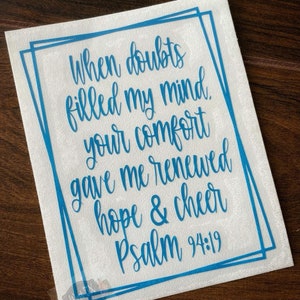 When doubts
filled my mind,
your comfort
gave me renewed
hope & cheer
Psalm 94:19